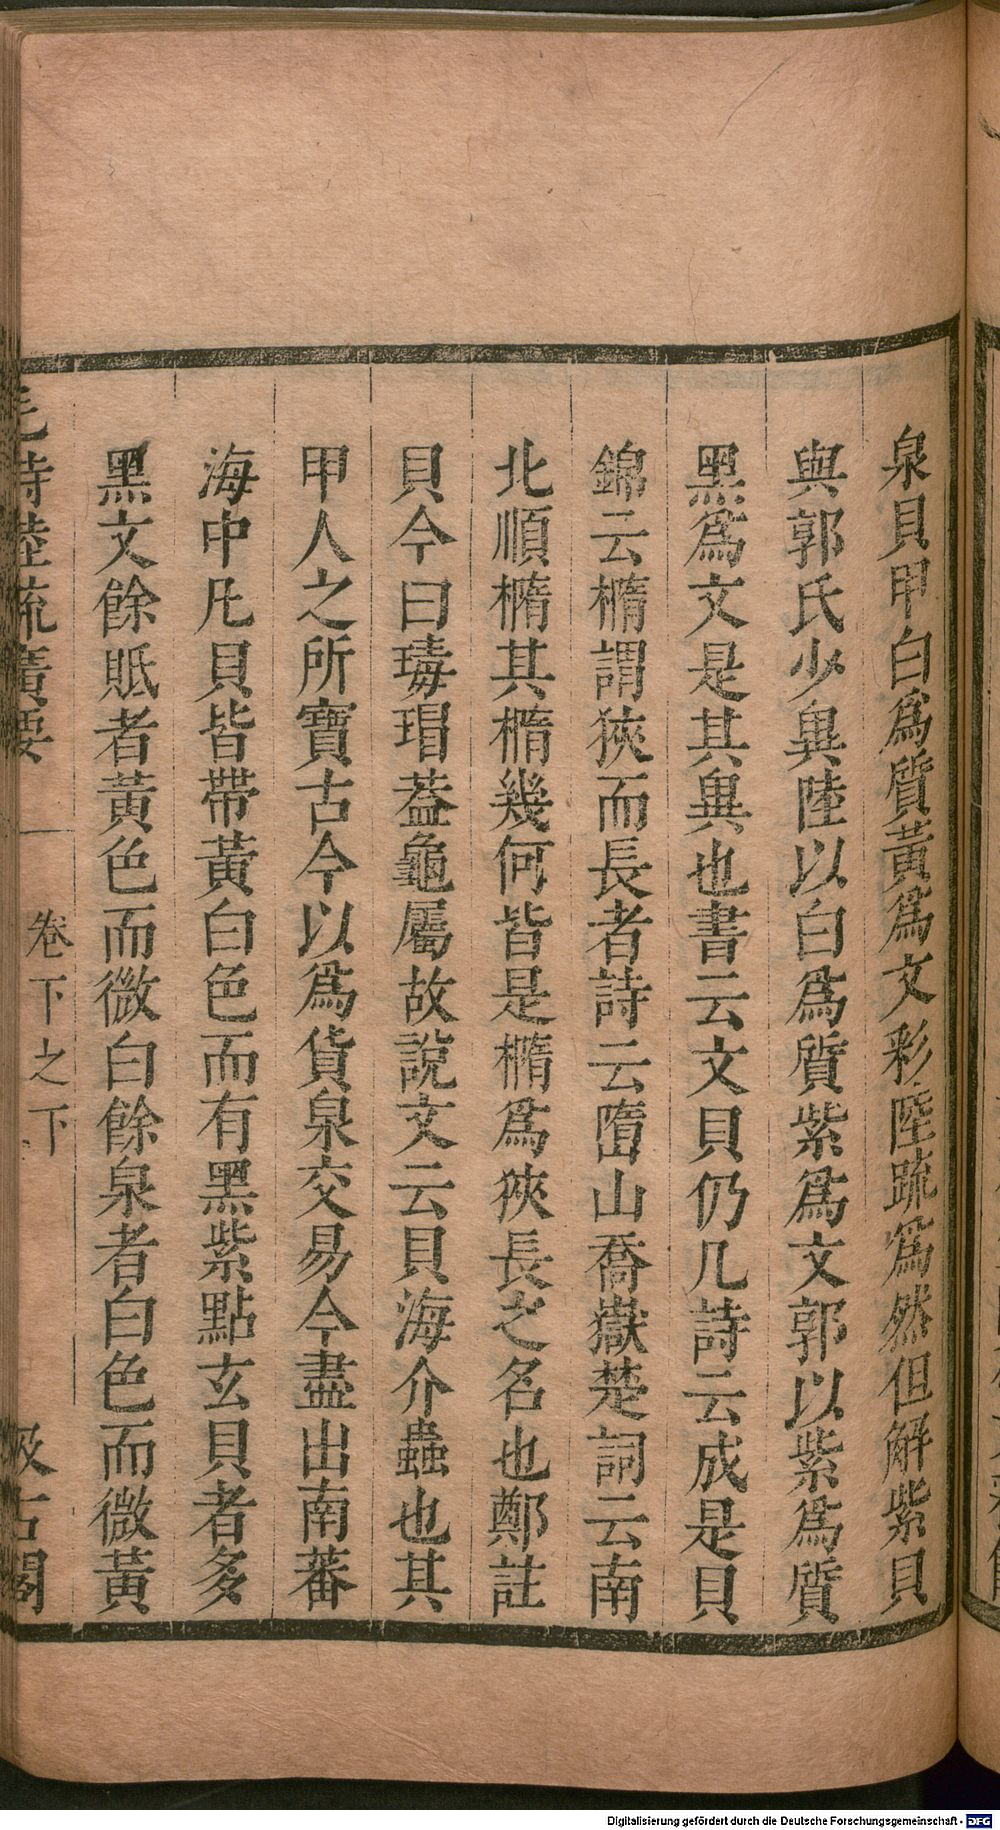 泉貝甲白爲質黃爲文彩陸疏爲然但解紫貝
與郭氏少異陸以白爲質紫爲文郭以紫爲質
黑爲文是其異也書云文貝仍几詩云成是貝
錦云橢謂狹而長者詩云嶞山喬嶽楚詞云南
北順橢其橢幾何皆是橢爲狹長之名也鄭註
貝今曰瑇瑁葢龜屬故說文云貝海介蟲也其
甲人之所寶古今以爲貨泉交易今盡出南蕃
海中凡貝皆帶黃白色而有黑紫點玄貝者多
黑文餘貾者黃色而微白餘泉者白色而微黃
毛詩陸疏廣要 卷下之下 汲古閣
Digitalisierung gefördert durch die Deutsche Forschungsgemeinschaft - DFG